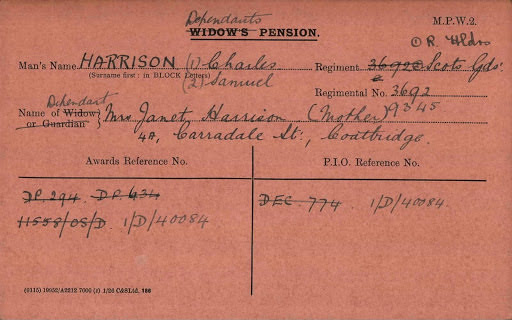 Dependants
WIDOW'S PENSION.
M.P.W.2.
Man's Name HARRISON (1) Charles
(2) Samuel
(Surname first: in BLOCK Letters)
① R. Fldrs
Regiment 3692 Scots Gds.
Regimental No. 3692
9345
Dependant
Name of Widow or Guardian } Mrs Janet Harrison (Mother)
4A, Carradale St., Coatbridge.
Awards Reference No.
P.I.O. Reference No.
DP.294. DP.634
11558/OS/D. 1/D/40084
DEC. 774. 1/D/40084.
(9115) 19052/A2212 7000 (2) 1/26 C&SLtd. 186